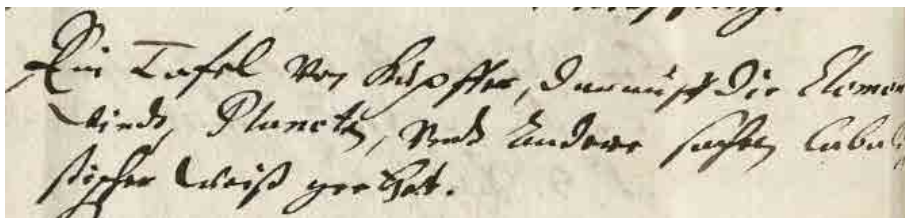 Ein Tafel von Kupffer, darauff die Elemen
Windt, Planeten, undt andere sachen Cabali
stischer Weiß geetzt.